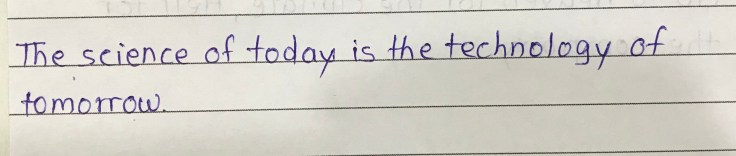 The science of today is the technology of
tomorrow.